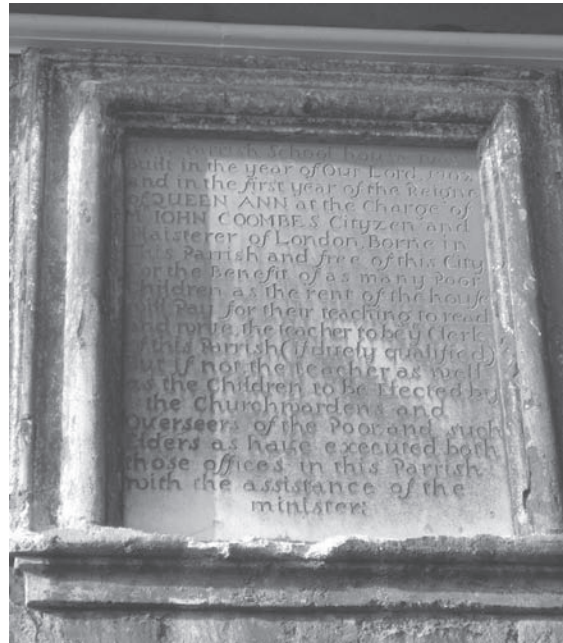 Parrish School house was
built in the year of Our Lord 1702
and in the first year of the Reigne
of QUEEN ANN at the Charge of
Mr. IOHN COOMBES Cityzen and
Plaisterer of London, Borne in
this Parrish and free of this City
for the Benefit of as many Poor
Children as the rent of the house
will Pay for their teaching to read
and write, the teacher to be ye Clerk
of this Parrish (if duely qualified)
but if not the teacher as well
as the Children to be Elected by
the Churchwardens and
Overseers of the Poor, and such
Elders as have executed both
those offices in this Parrish
with the assistance of the
minister: